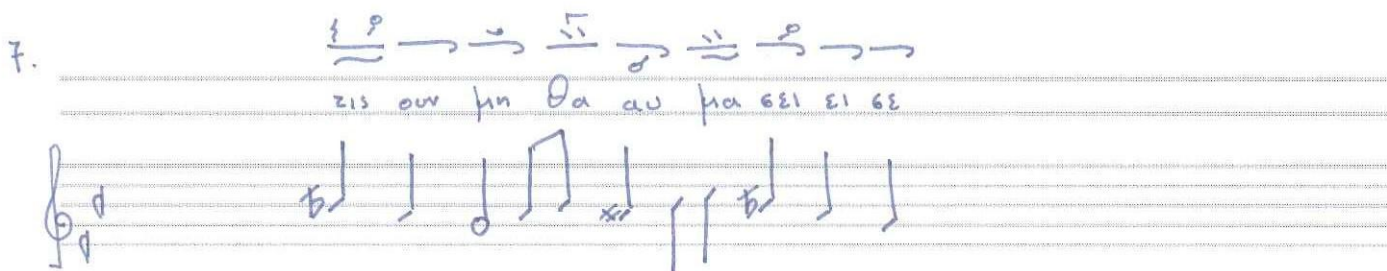 7.
τις ουν μη θα αυ μα σει ει σε